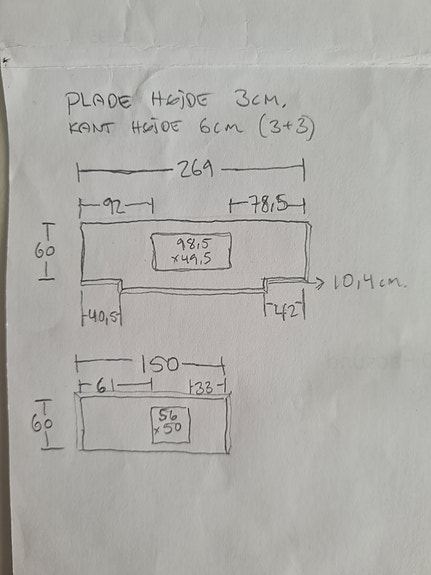 PLADE HØJDE 3CM.
KANT HØJDE 6CM (3+3)
269
92
78,5
60
98,5
x49,5
10,4cm.
40,5
42
150
61
33
60
56
x50